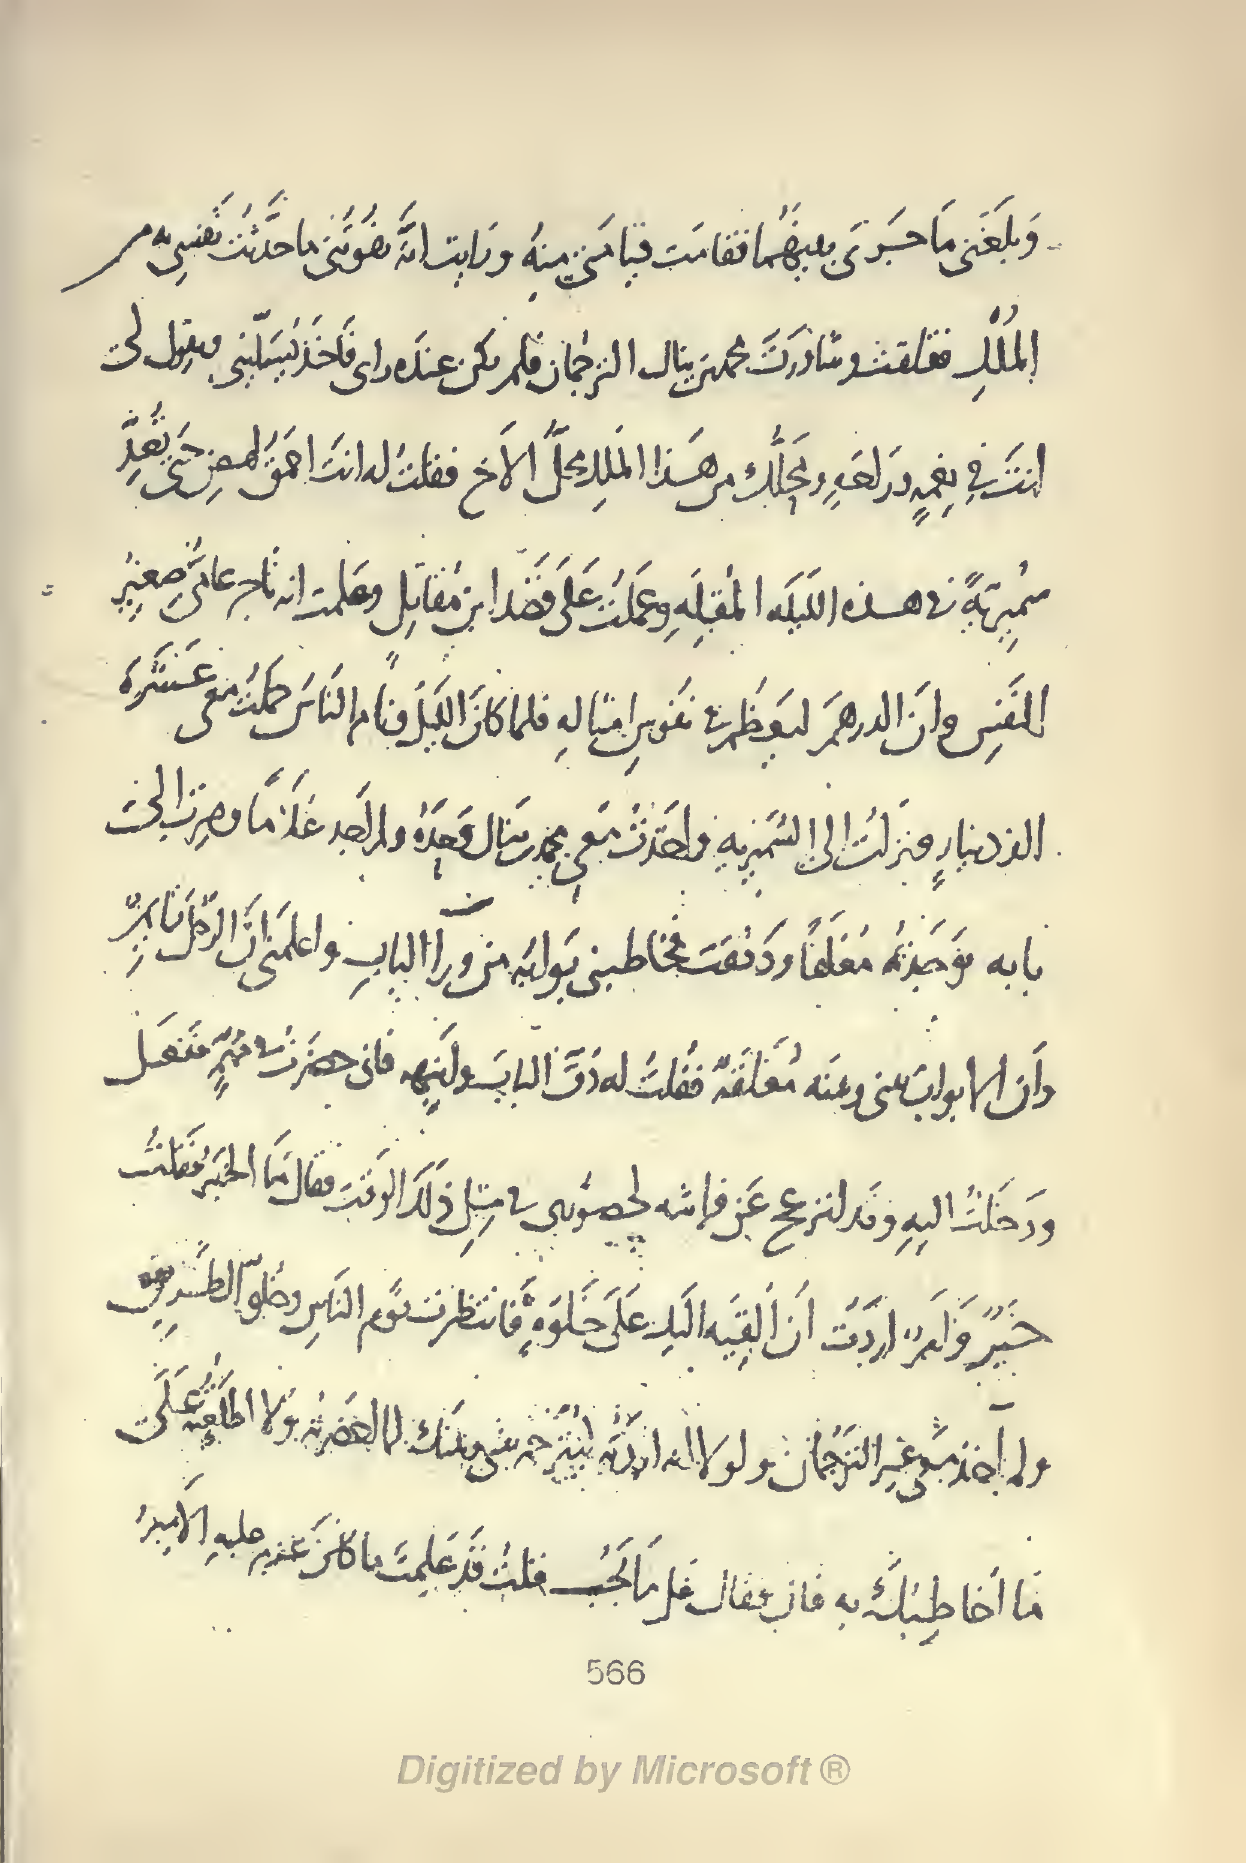 وَبَلَغَنِي مَا جَرَى بينهُما فقامَت قيامَتي مِنهُ ورايت انّهُ يفُوتُني ما حَدَّثْت نَفسِي به من
المُلْكِ فقلقت وشاورَتُ محمد بن ينال الترجُمان فلم يكن عندَه راى فاخَذ يُسَلّيني ويقول لى
انتَ في نِعمةٍ ورَاحَةٍ ومحَلّك من هَذا المَلِك محلُّ الاَخ فقلتُ له انتَ احمَقُ امضِ حَتى تُعِدَّ
سُمَيرِيّةً في هذه الليلَه المُقبِلَهِ وعَملتُ عَلَى قَصْد ابن مُقاتِل وعلمت انه تاجر عامِىٌّ صغيرُ
النَفسِ وانَّ الدرهمَ ليَعظُم في نفوسِ امثالهِ فلما كانَ الليلُ ونام الناسَ حملتُ معى عَشَرَة
الف دينارٍ ونزلتُ الى السُّمَيريه واخَذتُ مَعِى محمد بن ينال وَحدَهُ ولم اخذ غلامًا وصِرتُ الى
بابه فوَجَدتُه مُغلَقًا ودَققت فخاطبني بَوابُه من ورآ البابِ واعلمَنى انَّ الرجُل نائمٌ
وَأنَّ الابوابَ بيني وبينه مُغلَقَةٌ فقُلتُ له دُقَّ البابَ وانبِهه فانى حضَرتُ في مُهِمٍّ ففعَل
ودَخَلتُ اليهِ وقد انزعج عَن فراشه لحضورى في مِثلِ ذلكَ الوَقت فقال مَا الخبَرُ فقلتُ
خَيرٌ وَامرٌ اردَتُ أن أُلقِيَه اليك عَلَى خَلوَةٍ فانتظرت نَوم الناسِ وخُلوّ الطَّريق
ولم آخذ معِى غير التَرجُمان ولولا انه اردتُه ليُتَرجم بينى وبينك لما احضرتُه ولا اطلعتُه عَلَى
مَا اخاطِبُكَ به فقال قل مَا تُحب قلتُ قد عَلِمتَ ما كانَ عَزم عليهِ الاميرُ
566
Digitized by Microsoft ®